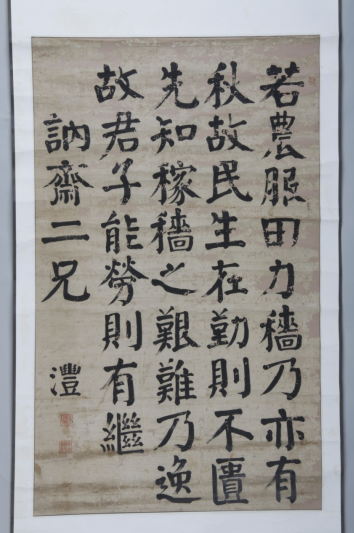 若農服田力穡乃亦有
秋故民生在勤則不匱
先知稼穡之艱難乃逸
故君子能勞則有繼
訥齋二兄
灃